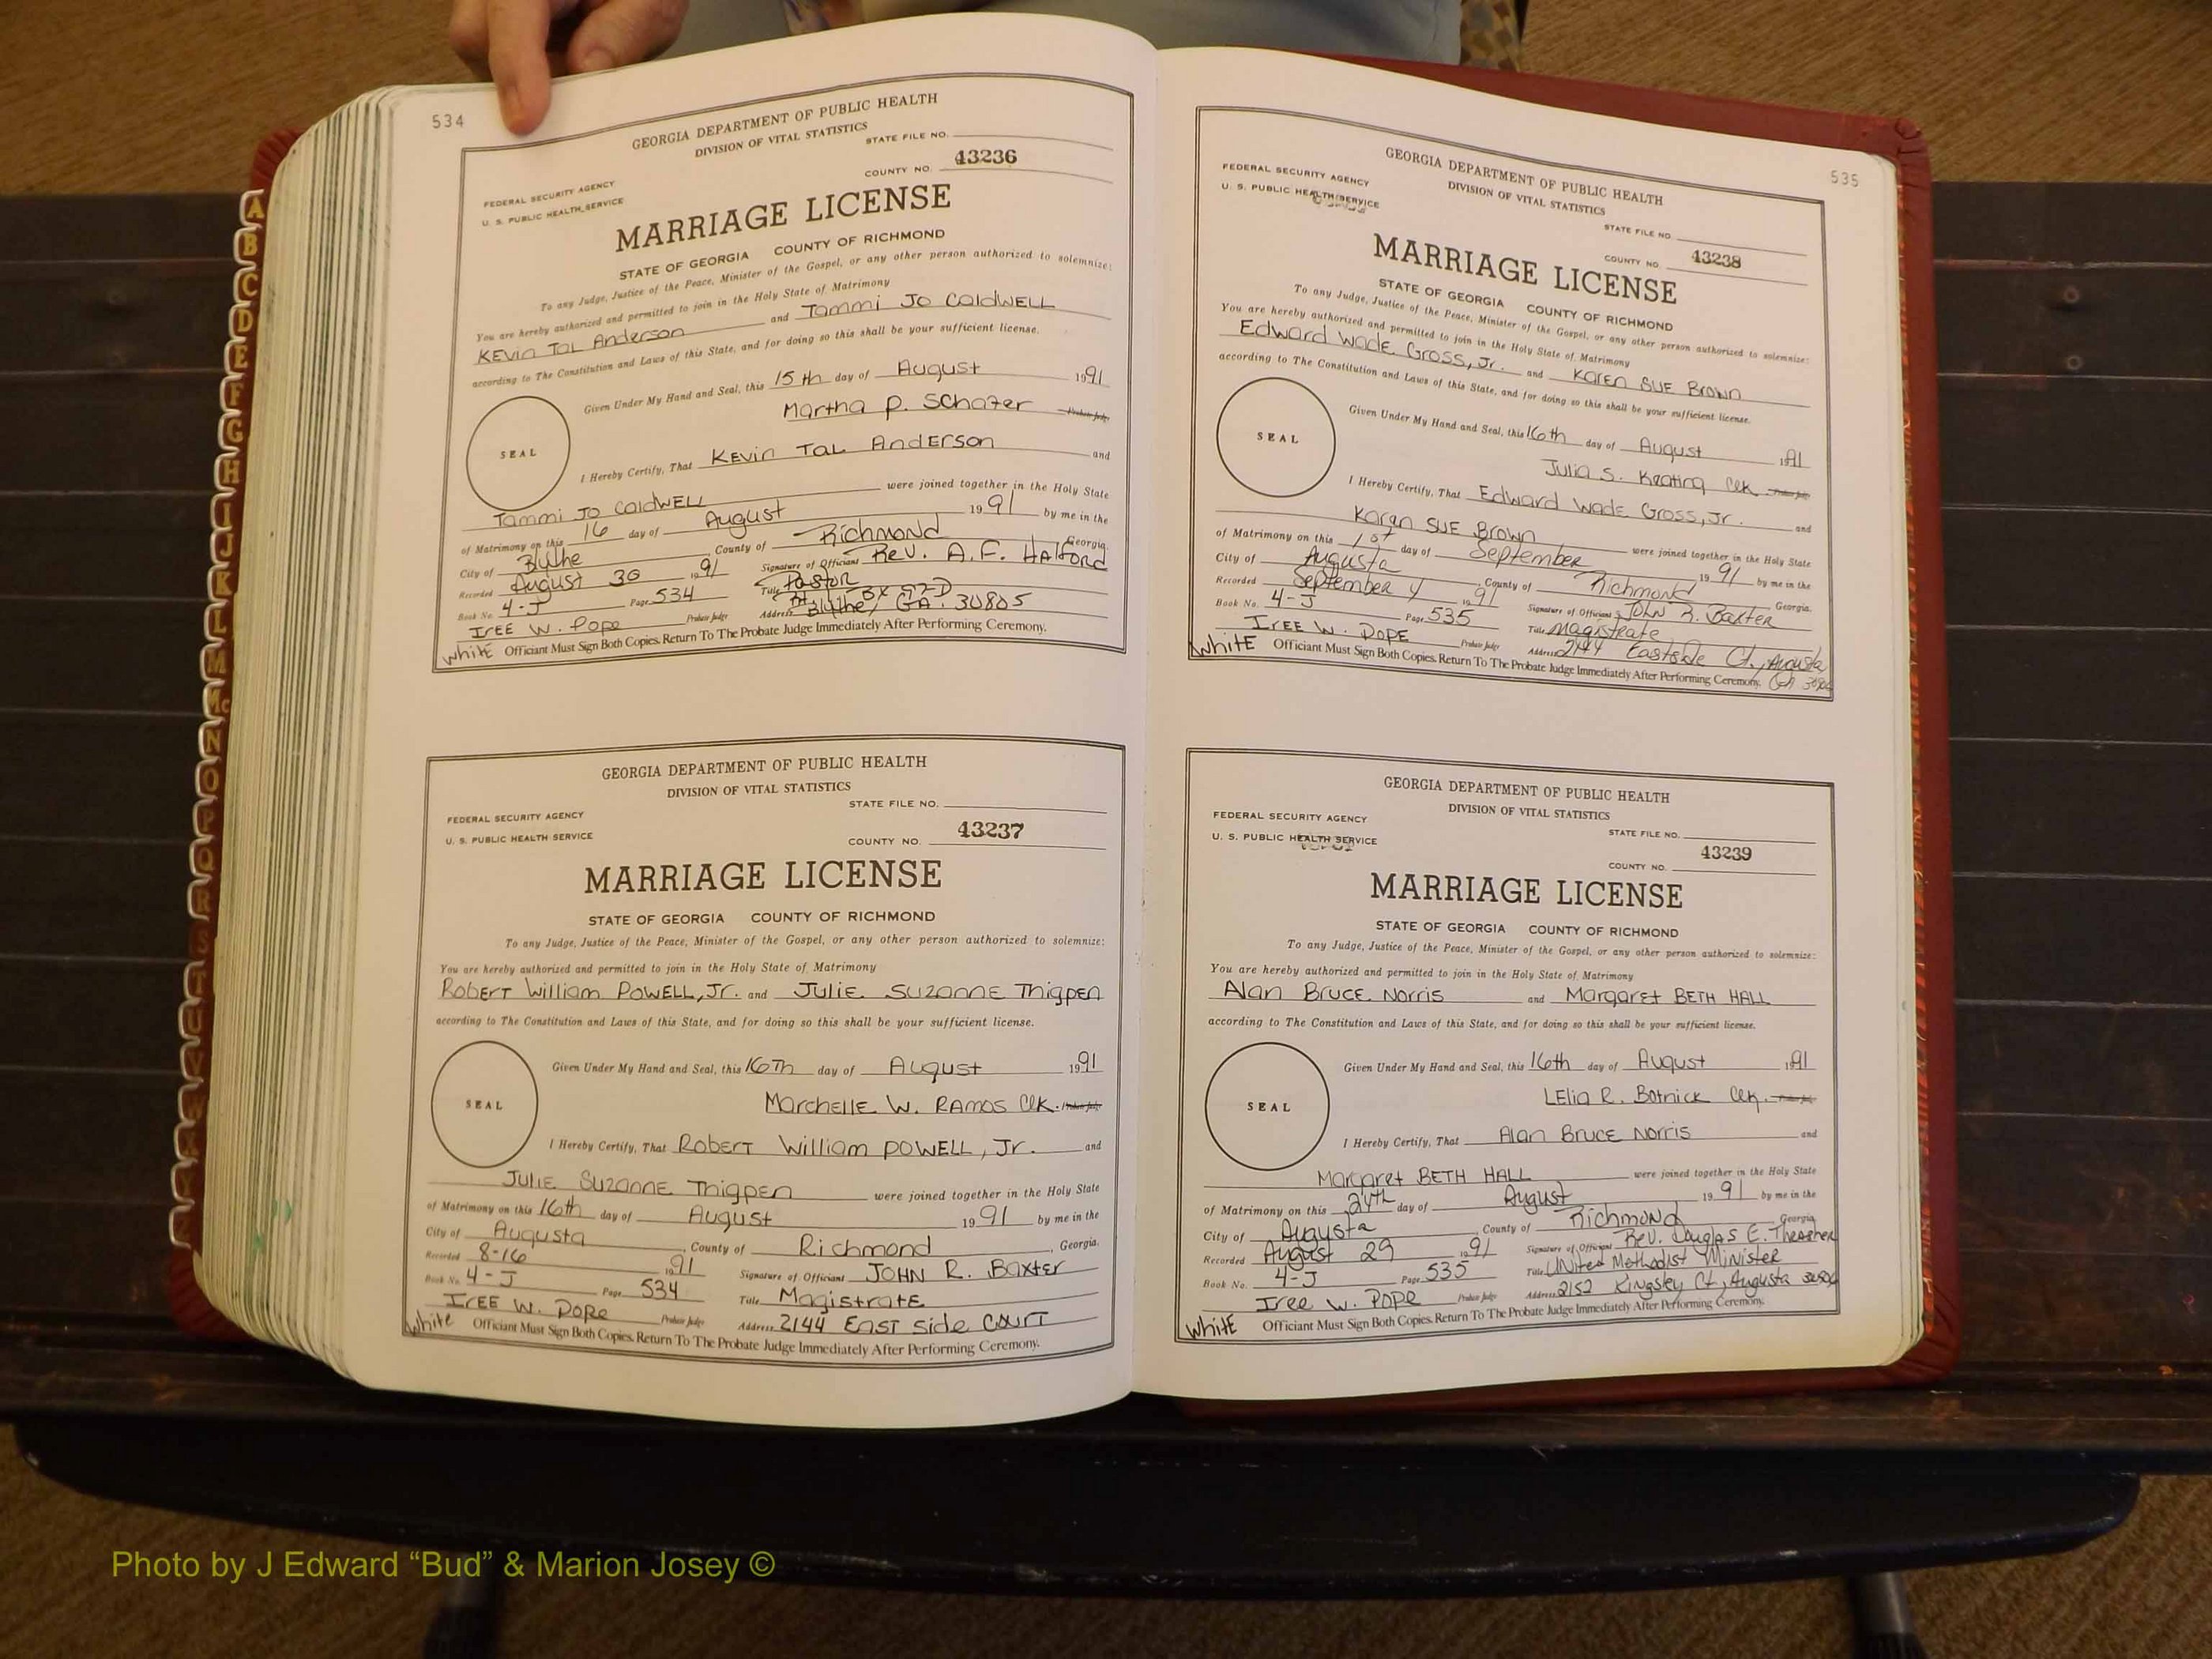 534
GEORGIA DEPARTMENT OF PUBLIC HEALTH
DIVISION OF VITAL STATISTICS
STATE FILE NO.
FEDERAL SECURITY AGENCY
U. S. PUBLIC HEALTH SERVICE
COUNTY NO. 43236
MARRIAGE LICENSE
STATE OF GEORGIA COUNTY OF RICHMOND
To any Judge, Justice of the Peace, Minister of the Gospel, or any other person authorized to solemnize:
You are hereby authorized and permitted to join in the Holy State of Matrimony
Kevin Tal Anderson and Tammi Jo Caldwell
according to The Constitution and Laws of this State, and for doing so this shall be your sufficient license.
Given Under My Hand and Seal, this 15th day of August 1991
Martha P. Schafer Probate Judge
SEAL
I Hereby Certify, That Kevin Tal Anderson and
Tammi Jo Caldwell were joined together in the Holy State
of Matrimony on this 16 day of August 1991 by me in the
City of Blythe, County of Richmond Georgia.
Recorded August 30 1991 Signature of Officiant Rev. A.F. Halford
Book No. 4-J Page 534 Title Pastor
Bx 97-D
Iree W. Pope Probate Judge Address Blythe, GA. 30805
White Officiant Must Sign Both Copies. Return To The Probate Judge Immediately After Performing Ceremony.
GEORGIA DEPARTMENT OF PUBLIC HEALTH
DIVISION OF VITAL STATISTICS
STATE FILE NO.
FEDERAL SECURITY AGENCY
U. S. PUBLIC HEALTH SERVICE
COUNTY NO. 43237
MARRIAGE LICENSE
STATE OF GEORGIA COUNTY OF RICHMOND
To any Judge, Justice of the Peace, Minister of the Gospel, or any other person authorized to solemnize:
You are hereby authorized and permitted to join in the Holy State of Matrimony
Robert William Powell, Jr. and Julie Suzanne Thigpen
according to The Constitution and Laws of this State, and for doing so this shall be your sufficient license.
Given Under My Hand and Seal, this 16Th day of August 1991
Marchelle W. Ramos Clk. Probate Judge
SEAL
I Hereby Certify, That Robert William Powell, Jr. and
Julie Suzanne Thigpen were joined together in the Holy State
of Matrimony on this 16th day of August 1991 by me in the
City of Augusta, County of Richmond, Georgia.
Recorded 8-16 1991 Signature of Officiant John R. Baxter
Book No. 4-J Page 534 Title Magistrate
Iree W. Pope Probate Judge Address 2144 East Side Court
White Officiant Must Sign Both Copies. Return To The Probate Judge Immediately After Performing Ceremony.
535
GEORGIA DEPARTMENT OF PUBLIC HEALTH
DIVISION OF VITAL STATISTICS
FEDERAL SECURITY AGENCY
U. S. PUBLIC HEALTH SERVICE
STATE FILE NO.
COUNTY NO. 43238
MARRIAGE LICENSE
STATE OF GEORGIA COUNTY OF RICHMOND
To any Judge, Justice of the Peace, Minister of the Gospel, or any other person authorized to solemnize:
You are hereby authorized and permitted to join in the Holy State of Matrimony
Edward Wade Gross, Jr. and Karen Sue Brown
according to The Constitution and Laws of this State, and for doing so this shall be your sufficient license.
Given Under My Hand and Seal, this 16th day of August 1991
Julia S. Keating Clk. Probate Judge
SEAL
I Hereby Certify, That Edward Wade Gross, Jr. and
Karen Sue Brown were joined together in the Holy State
of Matrimony on this 1st day of September 1991 by me in the
City of Augusta, County of Richmond Georgia.
Recorded September 4 1991 Signature of Officiant John R. Baxter
Book No. 4-J Page 535 Title Magistrate
Iree W. Pope Probate Judge Address 2144 Eastside Ct., Augusta
White Officiant Must Sign Both Copies. Return To The Probate Judge Immediately After Performing Ceremony.
GEORGIA DEPARTMENT OF PUBLIC HEALTH
DIVISION OF VITAL STATISTICS
FEDERAL SECURITY AGENCY
U. S. PUBLIC HEALTH SERVICE
STATE FILE NO.
COUNTY NO. 43239
MARRIAGE LICENSE
STATE OF GEORGIA COUNTY OF RICHMOND
To any Judge, Justice of the Peace, Minister of the Gospel, or any other person authorized to solemnize:
You are hereby authorized and permitted to join in the Holy State of Matrimony
Alan Bruce Norris and Margaret Beth Hall
according to The Constitution and Laws of this State, and for doing so this shall be your sufficient license.
Given Under My Hand and Seal, this 16th day of August 1991
Lelia R. Botnick Clk. Probate Judge
SEAL
I Hereby Certify, That Alan Bruce Norris and
Margaret Beth Hall were joined together in the Holy State
of Matrimony on this 24th day of August 1991 by me in the
City of Augusta, County of Richmond Georgia
Recorded August 29 1991 Signature of Officiant Rev. Douglas E. Thrasher
Book No. 4-J Page 535 Title United Methodist Minister
Iree W. Pope Probate Judge Address 2152 Kingsley Ct, Augusta
White Officiant Must Sign Both Copies. Return To The Probate Judge Immediately After Performing Ceremony.
A
B
C
D
E
F
G
H
I
J
K
L
M
Mc
N
O
P
Q
R
S
T
Photo by J Edward “Bud” & Marion Josey ©